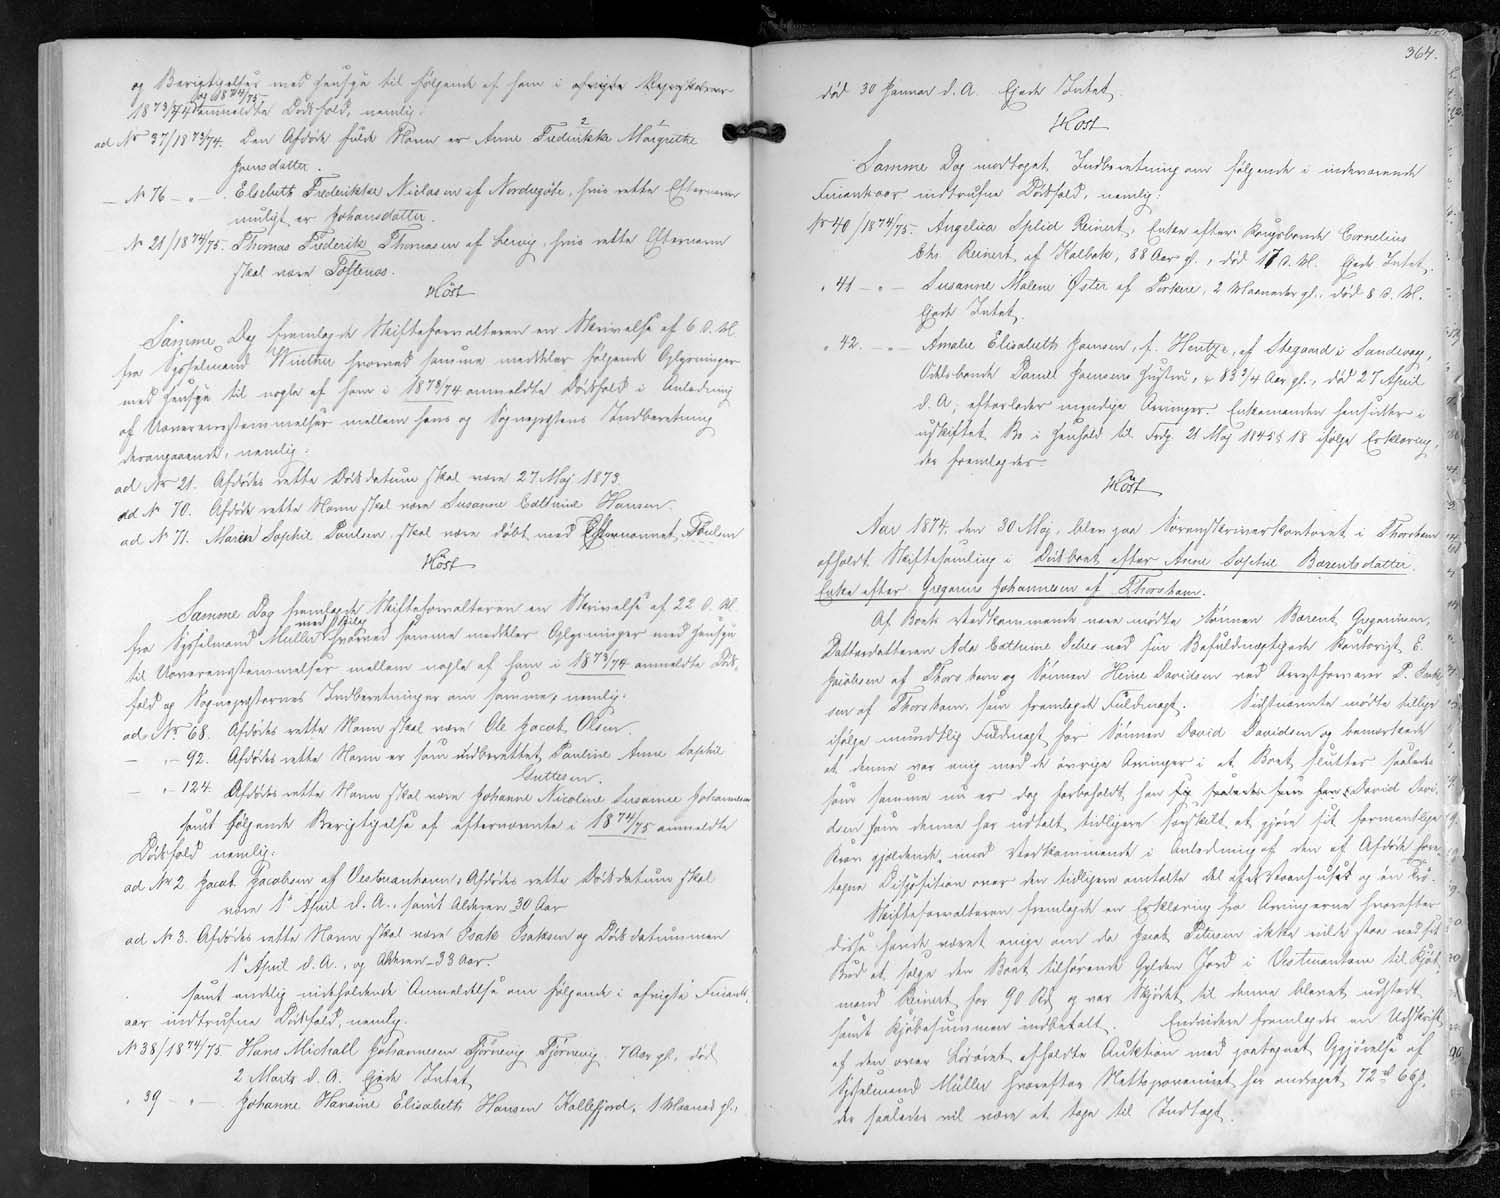 og Berigtigelser med Hensyn til følgende af ham i afvigte Regnskabsaar
og 1874/75
1873/74 anmeldte Dødsfald, nemlig:
ad Nr 37/1873/74. Den Afdøde fulde Navn er Anne Frederikke Margrethe
Joensdatter.
— Nr 76 — " — . Elsebeth Frederikke Niclasen af Nordregøte, hvis rette Efternavn
muligt er Johansdatter.
— Nr 21/1874/75. Thomas Frederik Thomasen af Lervig, hvis rette Efternavn
skal være Toftenæs.
Høst
Samme Dag fremlagde Skifteforvalteren en Skrivelse af 6 d. M.
fra Sysselmand Winther hvorved samme meddeler følgende Oplysninger
med Hensyn til nogle af ham i 1873/74 anmeldte Dødsfald i Anledning
af Uoverensstemmelser mellem hans og Sognepræstens Indberetning
derangaaende, nemlig:
ad Nr 21. Afdødes rette Dødsdatum skal være 27 Maj 1873.
ad Nr 70. Afdøde rette Navn skal være Susanne Cathrine Hansen.
ad Nr 71. Maren Sophie Poulsen skal være døbt med Efternavnet Poulsen
Høst
Samme Dag fremlagde Skifteforvalteren en Skrivelse af 22 d. M.
med Bilag
fra Sysselmand Müller hvorved samme meddeler Oplysninger med Hensyn
til Uoverensstemmelser mellem nogle af ham i 1873/74 anmeldte Døds-
fald og Sognepræsternes Indberetninger om samme, nemlig:
ad Nr 68. Afdødes rette Navn skal være Ole Jacob Olsen.
— " — 92. Afdødes rette Navn er som indberettet Pauline Anne Sophie
Guttesen.
— " — 124. Afdødes rette Navn skal være Johanne Nicoline Susanne Johannesen
samt følgende Berigtigelse af efternævnte i 1874/75 anmeldte
Dødsfald nemlig:
ad Nr 2 Jacob Jacobsen af Vestmanhavn, Afdødes rette Dødsdatum skal
være 1ste April d. A., samt Alderen 30 Aar
ad Nr 3. Afdødes rette Navn skal være Isak Isaksen og Dødsdatummen
1ste April d. A., og Alderen 33 Aar.
samt endelig indeholdende Anmeldelse om følgende i afvigte Finants-
aar indtrufne Dødsfald, nemlig.
Nr 38/1874/75 Hans Michael Johannesen Tjørnevig Tjørnevig. 7 Aar gl., død
2 Marts d. A. Ejede Intet
" 39 — " — Johanne Hansine Elisabeth Hansen Kollefjord, 1 Maaned gl.,
364.
død 30 Januar d. A. Ejede Intet.
Høst
Samme Dag modtoget Indberetning om følgende i indeværende
Finantsaar indtrufne Dødsfald, nemlig:
Nr 40/1874/75 — Angelica Splid Reinert, Enke efter Kongsbonde Cornelius
Chr. Reinert af Kalbak, 88 Aar gl., død 17 d. M. Ejede Intet.
" 41 — " — Susanne Malene Øster af Porkere, 2 Maaneder gl., død 8 d. M.
Ejede Intet.
" 42. — " — Amalie Elisabeth Joensen, f. Hentze, af Stegaard i Sandevaag,
Odelsbonde Daniel Joensens Hustru, 83 3/4 Aar gl., død 27 April
d. A., efterlader myndige Arvinger. Enkemanden hensidder i
uskiftet Bo i Henhold til Frdg. 21 Maj 1845 § 18 ifølge Erklæring,
der fremlagdes.
Høst
Aar 1874, den 30 Maj, blev paa Sorenskriverkontoret i Thorshavn
afholdt Skiftesamling i Dødsboet efter Anne Sophie Barentsdatter,
Enke efter Gregorius Johannesen af Thorshavn.
Af Boets Vedkommende vare mødte Sønnen Barent Gregoriusen,
Datterdatteren Ada Cathrine Debes ved sin Befuldmægtigede Kontorist E.
Jacobsen af Thorshavn og Sønnen Heine Davidsen ved Arrestforvarer P. Isak-
sen af Thorshavn, som fremlagde Fuldmagt. Sidstnævnte mødte tillige
ifølge mundtlig Fuldmagt for Sønnen David Davidsen og bemærkede
at denne var enig med de øvrige Arvinger i at Boet sluttes saaledes
som samme nu er dog forbeholdt han David Davi-
dsen som denne har udtalt tidligere særskilt at gjøre sit formentlige
Krav gjældende mod Vedkommende i Anledning af den af Afdøde fore-
tagne Disposition over den tidligere omtalte Del af et Vaaenhuset og en Ko.
Skifteforvalteren fremlagde en Erklæring fra Arvingerne hvorefter
disse havde været enige om da Jacob Petersen ikke vilde staa ved sit
Bud at sælge den Boet tilhørende Gylden Jord i Vestmanhavn til Kjøb-
mand Reinert for 90 Rd og var Skjødet til denne blevet udstedt
samt Kjøbesummen indbetalt. Endvidere fremlagdes en Udskrift
af den over Løsøret afholdte Auktion med paategnet Opgjørelse af
Sysselmand Müller hvorefter Nettoprovenuet har andraget 72 rd 66 s.
der saaledes vil være at tage til Indtægt.